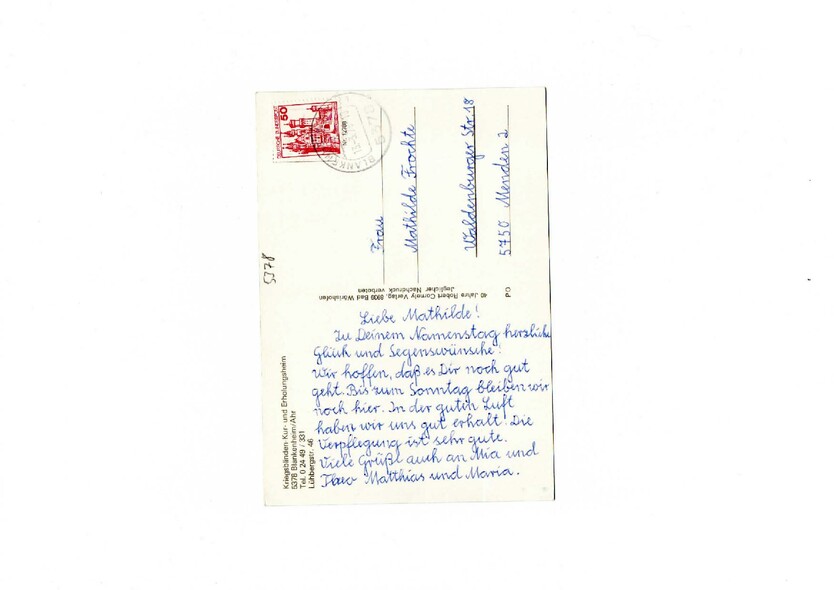 Kriegsblinden-Kur- und Erholungsheim
5378 Blankenheim/Ahr
Tel. 0 24 49 / 331
Lühbergstr. 46
5378
Liebe Mathilde!
Zu Deinem Namenstag herzliche
Glück und Segenswünsche!
Wir hoffen, daß es Dir noch gut
geht. Bis zum Sonntag bleiben wir
noch hier. In der guten Luft
haben wir uns gut erhalt! Die
Verpflegung ist sehr gute.
Viele Grüße auch an Mia und
Theo Matthias und Maria.
40 Jahre Robert Cornely Verlag, 8939 Bad Wörishofen
Jeglicher Nachdruck verboten
PO
DEUTSCHE BUNDESPOST
50
Frau
Mathilde Frochte
Waldenburger Str. 18
5750 Menden 2